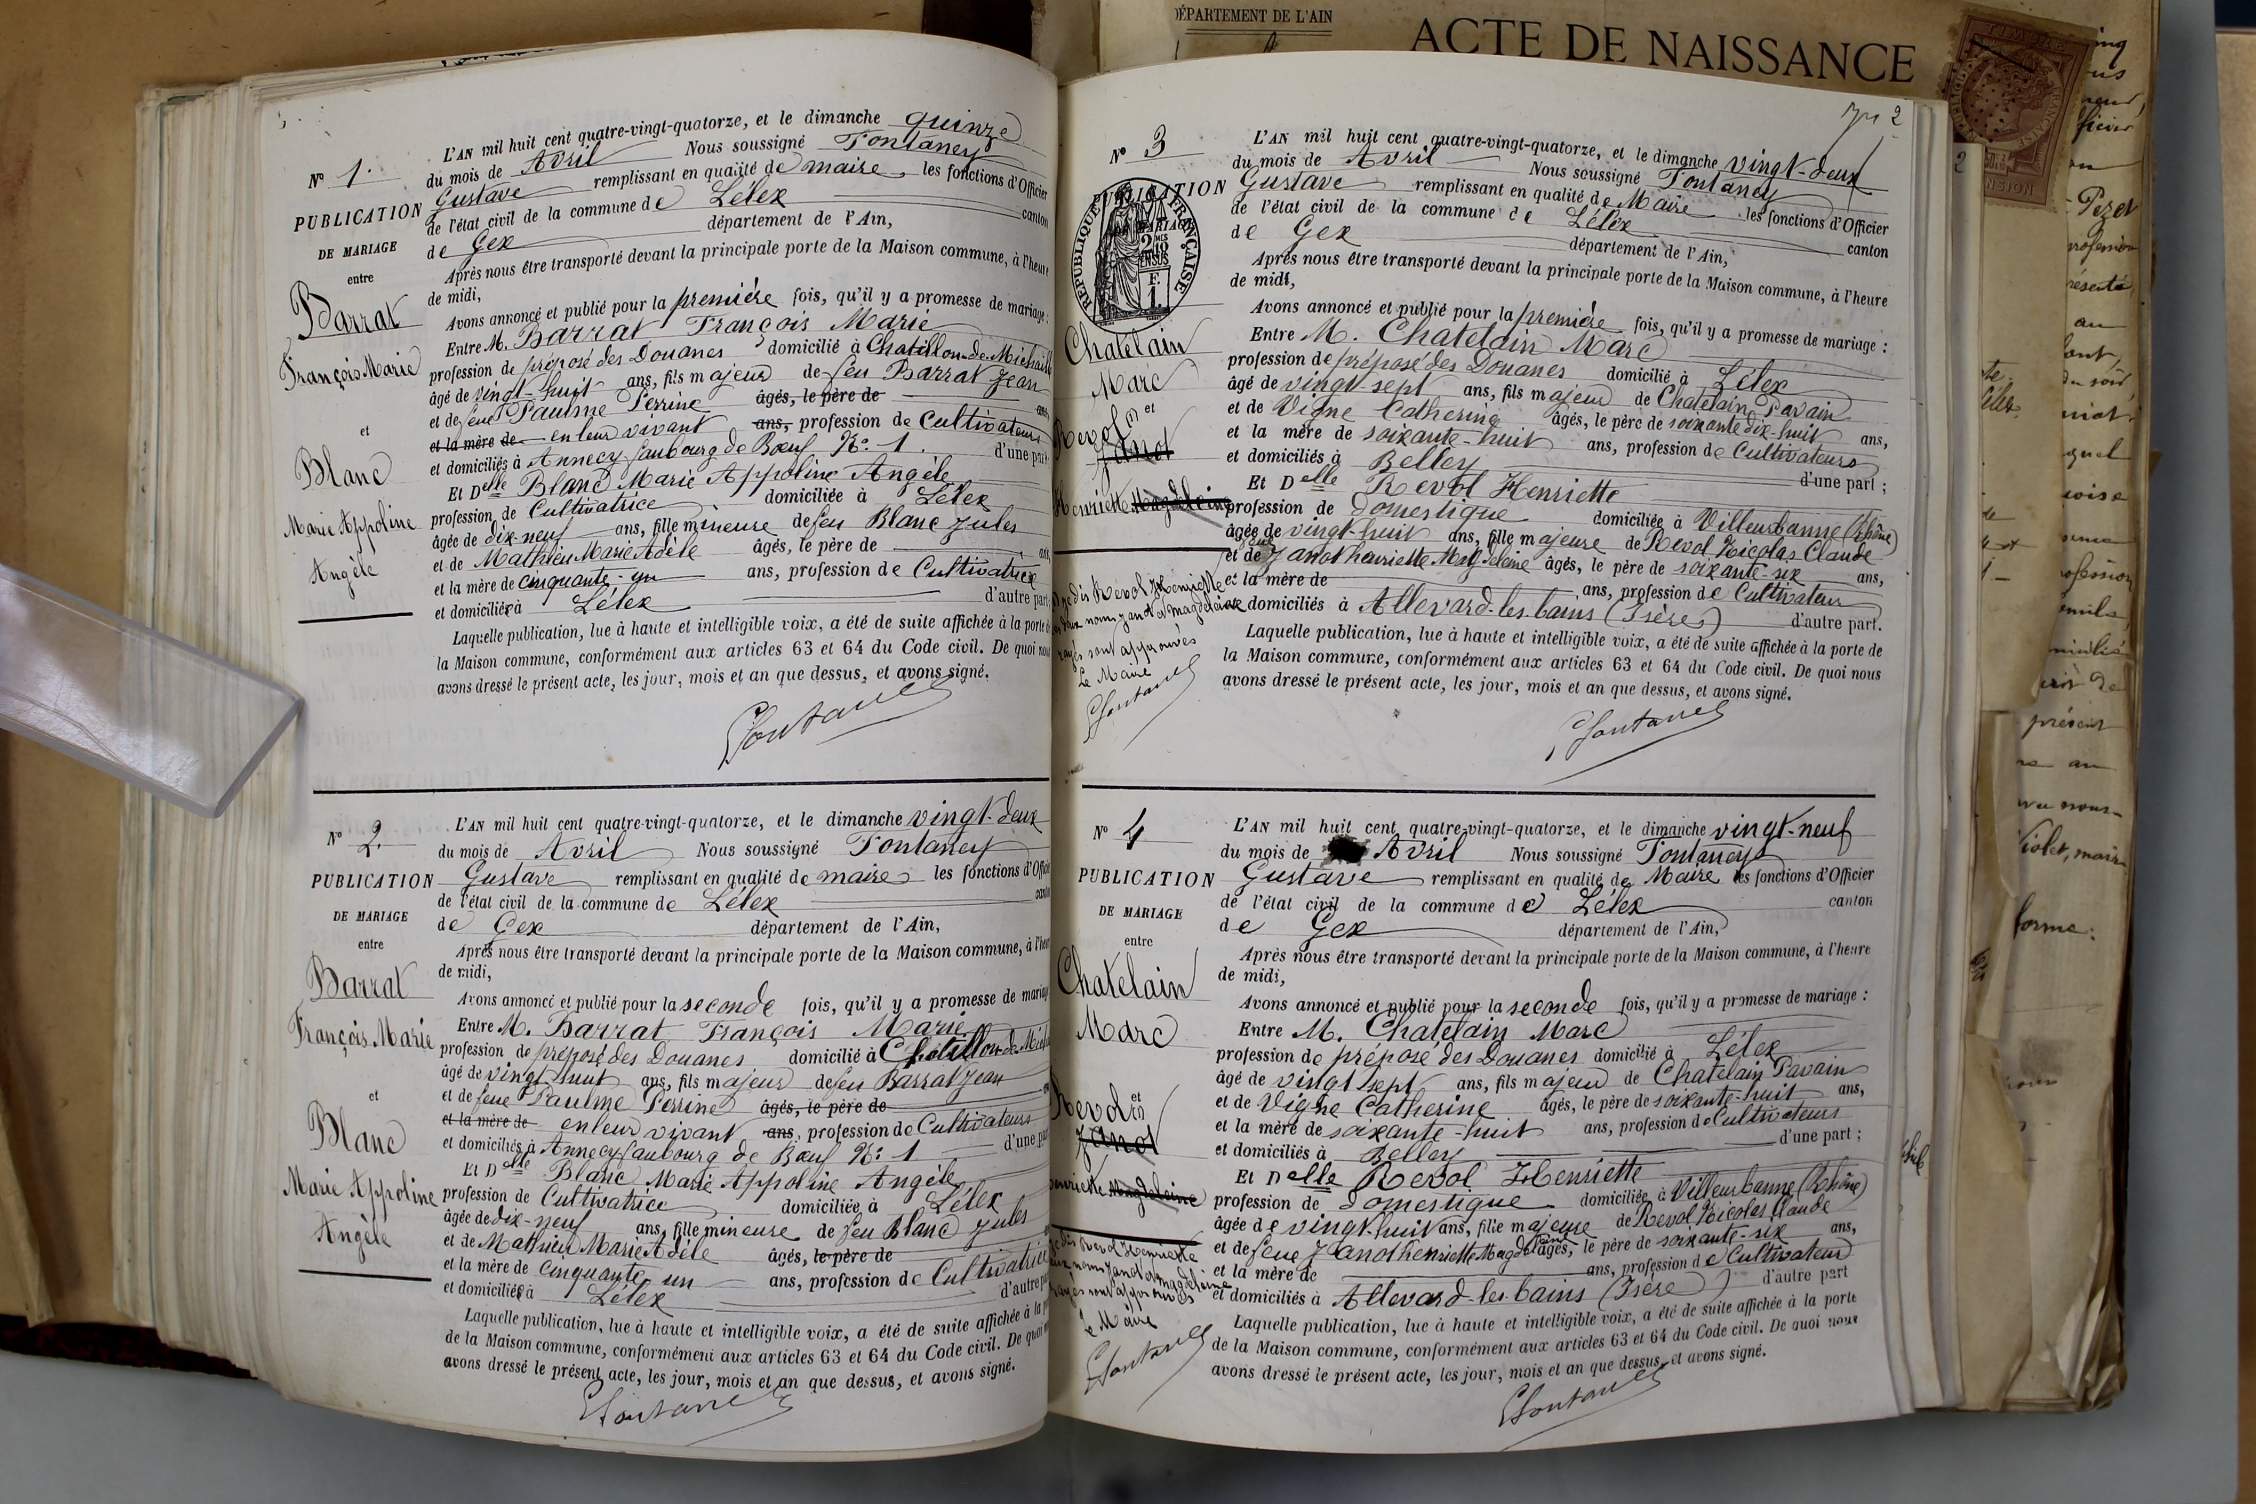 N° 1.
PUBLICATION
DE MARIAGE
entre
Barrat
François Marie
et
Blanc
Marie Appoline
Angèle
L'AN mil huit cent quatre-vingt-quatorze, et le dimanche quinze
du mois de Avril Nous soussigné Fontaney
Gustave remplissant en qualité de maire les fonctions d'Officier
de l'état civil de la commune de Lélex canton
de Gex département de l'Ain,
Après nous être transporté devant la principale porte de la Maison commune, à l'heure
de midi,
Avons annoncé et publié pour la première fois, qu'il y a promesse de mariage :
Entre M. Barrat François Marie
profession de préposé des Douanes domicilié à Chatillon-de-Michaille
âgé de vingt-huit ans, fils majeur de feu Barrat Jean
et de feue Paulme Perrine âgés, le père de ans,
et la mère de en leur vivant ans, profession de Cultivateurs
et domiciliés à Annecy faubourg de Bœuf N° 1 d'une part
Et Delle Blanc Marie Appoline Angèle
profession de Cultivatrice domiciliée à Lélex
âgée de dix-neuf ans, fille mineure de feu Blanc Jules
et de Mathieu Marie Adèle âgés, le père de ans,
et la mère de cinquante-un ans, profession de Cultivatrice
et domiciliée à Lélex d'autre part
Laquelle publication, lue à haute et intelligible voix, a été de suite affichée à la porte de
la Maison commune, conformément aux articles 63 et 64 du Code civil. De quoi nous
avons dressé le présent acte, les jour, mois et an que dessus, et avons signé.
GFontaney
N° 2.
PUBLICATION
DE MARIAGE
entre
Barrat
François Marie
et
Blanc
Marie Appoline
Angèle
L'AN mil huit cent quatre-vingt-quatorze, et le dimanche vingt-deux
du mois de Avril Nous soussigné Fontaney
Gustave remplissant en qualité de maire les fonctions d'Officier
de l'état civil de la commune de Lélex canton
de Gex département de l'Ain,
Après nous être transporté devant la principale porte de la Maison commune, à l'heure
de midi,
Avons annoncé et publié pour la seconde fois, qu'il y a promesse de mariage
Entre M. Barrat François Marie
profession de préposé des Douanes domicilié à Chatillon-de-Michaille
âgé de vingt huit ans, fils majeur de feu Barrat Jean
et de feue Paulme Perrine âgés, le père de
et la mère de en leur vivant ans, profession de Cultivateurs
et domiciliés à Annecy faubourg de Bœuf N° 1 d'une part
Et Delle Blanc Marie Appoline Angèle
profession de Cultivatrice domiciliée à Lélex
âgée de dix-neuf ans, fille mineure de feu Blanc Jules
et de Mathieu Marie Adèle âgés, le père de
et la mère de cinquante un ans, profession de Cultivatrice
et domiciliée à Lélex d'autre part
Laquelle publication, lue à haute et intelligible voix, a été de suite affichée à la porte
de la Maison commune, conformément aux articles 63 et 64 du Code civil. De quoi nous
avons dressé le présent acte, les jour, mois et an que dessus, et avons signé.
GFontaney
DÉPARTEMENT DE L'AIN
ACTE DE NAISSANCE
2
N° 3
PUBLICATION
DE MARIAGE
RÉPUBLIQUE FRANÇAISE
Chatelain
Marc
et
Revol
Janot
Henriette Magdeleine
L'AN mil huit cent quatre-vingt-quatorze, et le dimanche vingt-deux
du mois de Avril Nous soussigné Fontaney
Gustave remplissant en qualité de Maire les fonctions d'Officier
de l'état civil de la commune de Lélex canton
de Gex département de l'Ain,
Après nous être transporté devant la principale porte de la Maison commune, à l'heure
de midi,
Avons annoncé et publié pour la première fois, qu'il y a promesse de mariage :
Entre M. Chatelain Marc
profession de préposé des Douanes domicilié à Lélex
âgé de vingt sept ans, fils majeur de Chatelain Pavain
et de Vigne Catherine âgés, le père de soixante dix-huit ans,
et la mère de soixante-huit ans, profession de Cultivateurs
et domiciliés à Belley d'une part ;
Et Delle Revol Henriette
profession de Domestique domiciliée à Villeurbanne (Rhône)
âgée de vingt-huit ans, fille majeure de Revol Nicolas Claude
et de feue Janot henriette Magdeleine âgés, le père de soixante-six ans,
et la mère de ans, profession de Cultivateur
et domiciliés à Allevard-les-bains (Isère) d'autre part.
Laquelle publication, lue à haute et intelligible voix, a été de suite affichée à la porte de
la Maison commune, conformément aux articles 63 et 64 du Code civil. De quoi nous
avons dressé le présent acte, les jour, mois et an que dessus, et avons signé.
dis Revol Henriette
deux noms Janot et Magdeleine
rayés sont approuvés
Le Maire
GFontaney
GFontaney
N° 4
PUBLICATION
DE MARIAGE
entre
Chatelain
Marc
et
Revol
Janot
Henriette Magdeleine
L'AN mil huit cent quatre-vingt-quatorze, et le dimanche vingt-neuf
du mois de Avril Nous soussigné Fontaney
Gustave remplissant en qualité de Maire les fonctions d'Officier
de l'état civil de la commune de Lélex canton
de Gex département de l'Ain,
Après nous être transporté devant la principale porte de la Maison commune, à l'heure
de midi,
Avons annoncé et publié pour la seconde fois, qu'il y a promesse de mariage :
Entre M. Chatelain Marc
profession de préposé des Douanes domicilié à Lélex
âgé de vingt sept ans, fils majeur de Chatelain Pavain
et de Vigne Catherine âgés, le père de soixante-huit ans,
et la mère de soixante-huit ans, profession de Cultivateurs
et domiciliés à Belley d'une part ;
Et Delle Revol Henriette
profession de Domestique domiciliée à Villeurbanne (Rhône)
âgée de vingt-huit ans, fille majeure de Revol Nicolas Claude
et de feue Janot henriette Magdeleine âgés, le père de soixante-six ans,
et la mère de ans, profession de Cultivateur
et domiciliés à Allevard-les-bains (Isère) d'autre part
Laquelle publication, lue à haute et intelligible voix, a été de suite affichée à la porte
de la Maison commune, conformément aux articles 63 et 64 du Code civil. De quoi nous
avons dressé le présent acte, les jour, mois et an que dessus, et avons signé.
dis Revol Henriette
deux noms Janot et Magdeleine
rayés sont approuvés
Le Maire
GFontaney
GFontaney